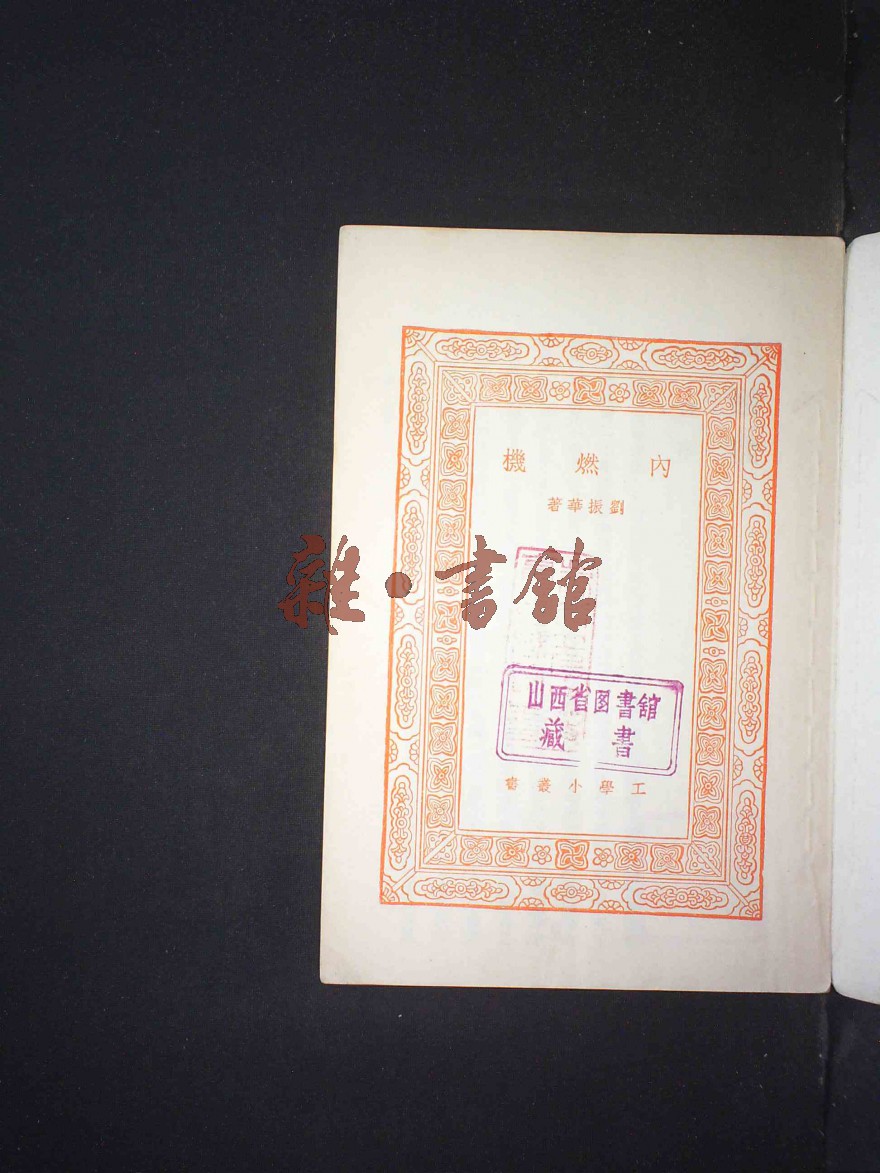 內燃機
劉振華著
雜·書館
山西省图書舘
藏書
工學小叢書